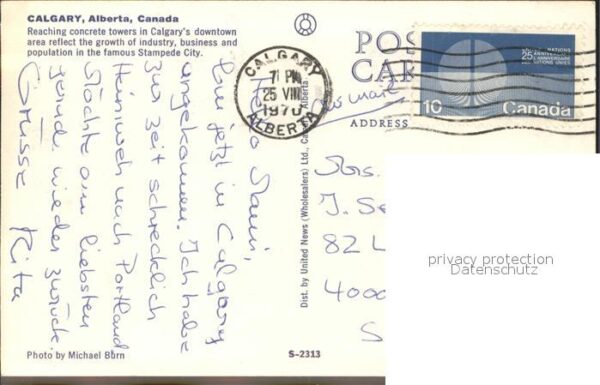 CALGARY, Alberta, Canada
Reaching concrete towers in Calgary's downtown
area reflect the growth of industry, business and
population in the famous Stampede City.
Hallo Mami,
Bin jetzt in Calgary
angekommen. Ich habe
zur zeit schrecklich
Heimweh nach Portland
Möchte am liebsten
gerade wieder zurück.
Grüsse Rita
Photo by Michael Burn
S-2313
Dist. by United News (Wholesalers) Ltd., Calgary, Alberta
POST
CARD
ADDRESS
CALGARY
7 PM
25 VIII
1970
ALBERTA
air mail
UNITED NATIONS
25
ANNIVERSARY
ANNIVERSAIRE
NATIONS UNIES
10
Canada
Mrs.
J. Se
82 L
4000
S
privacy protection
Datenschutz